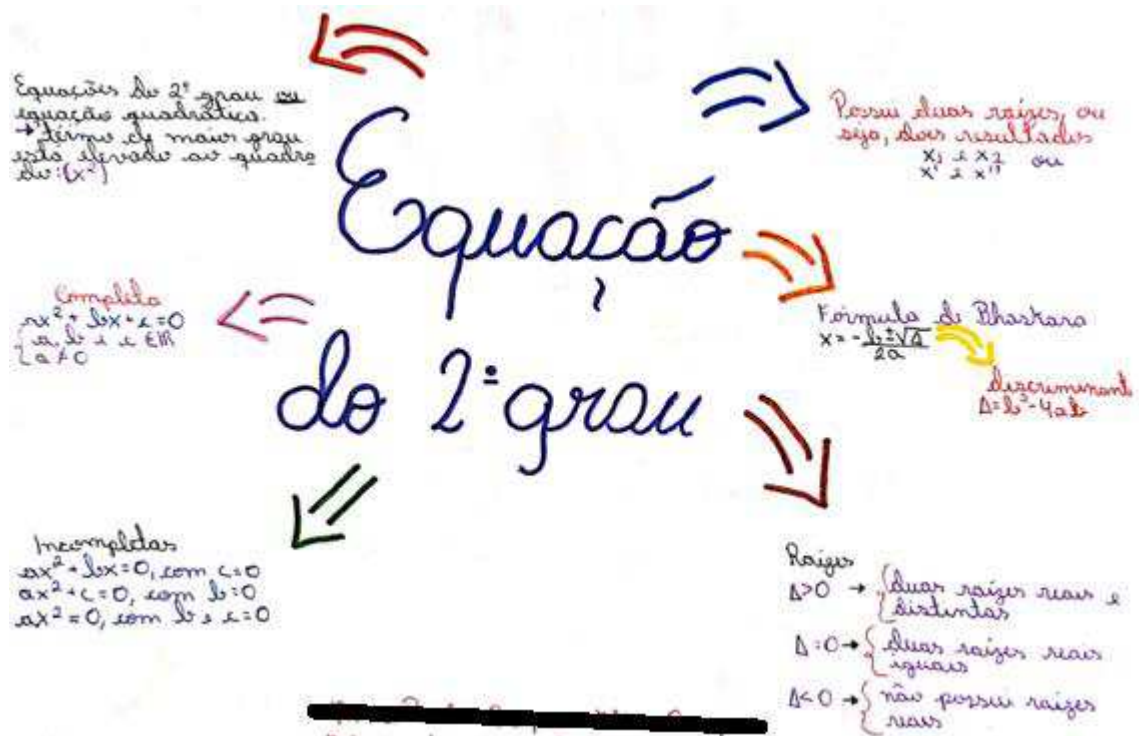 Equação
do 2º grau
Equações do 2º grau ou
equação quadrática.
→ termo de maior grau
está elevado ao quadra
do: (x²)
Possui duas raízes, ou
seja, dois resultados
x₁ e x₂ ou
x' e x''
Completa
ax² + bx + c = 0
{ a, b e c ∈ IR
a ≠ 0
Fórmula de Bhaskara
x = -b ± √Δ
2a
discriminant
Δ = b² - 4ab
Incompletas
ax² + bx = 0, com c = 0
ax² + c = 0, com b = 0
ax² = 0, com b e c = 0
Raízes
Δ>0 → { duas raízes reais e
distintas
Δ = 0 → { duas raízes reais
iguais
Δ<0 → { não possui raízes
reais